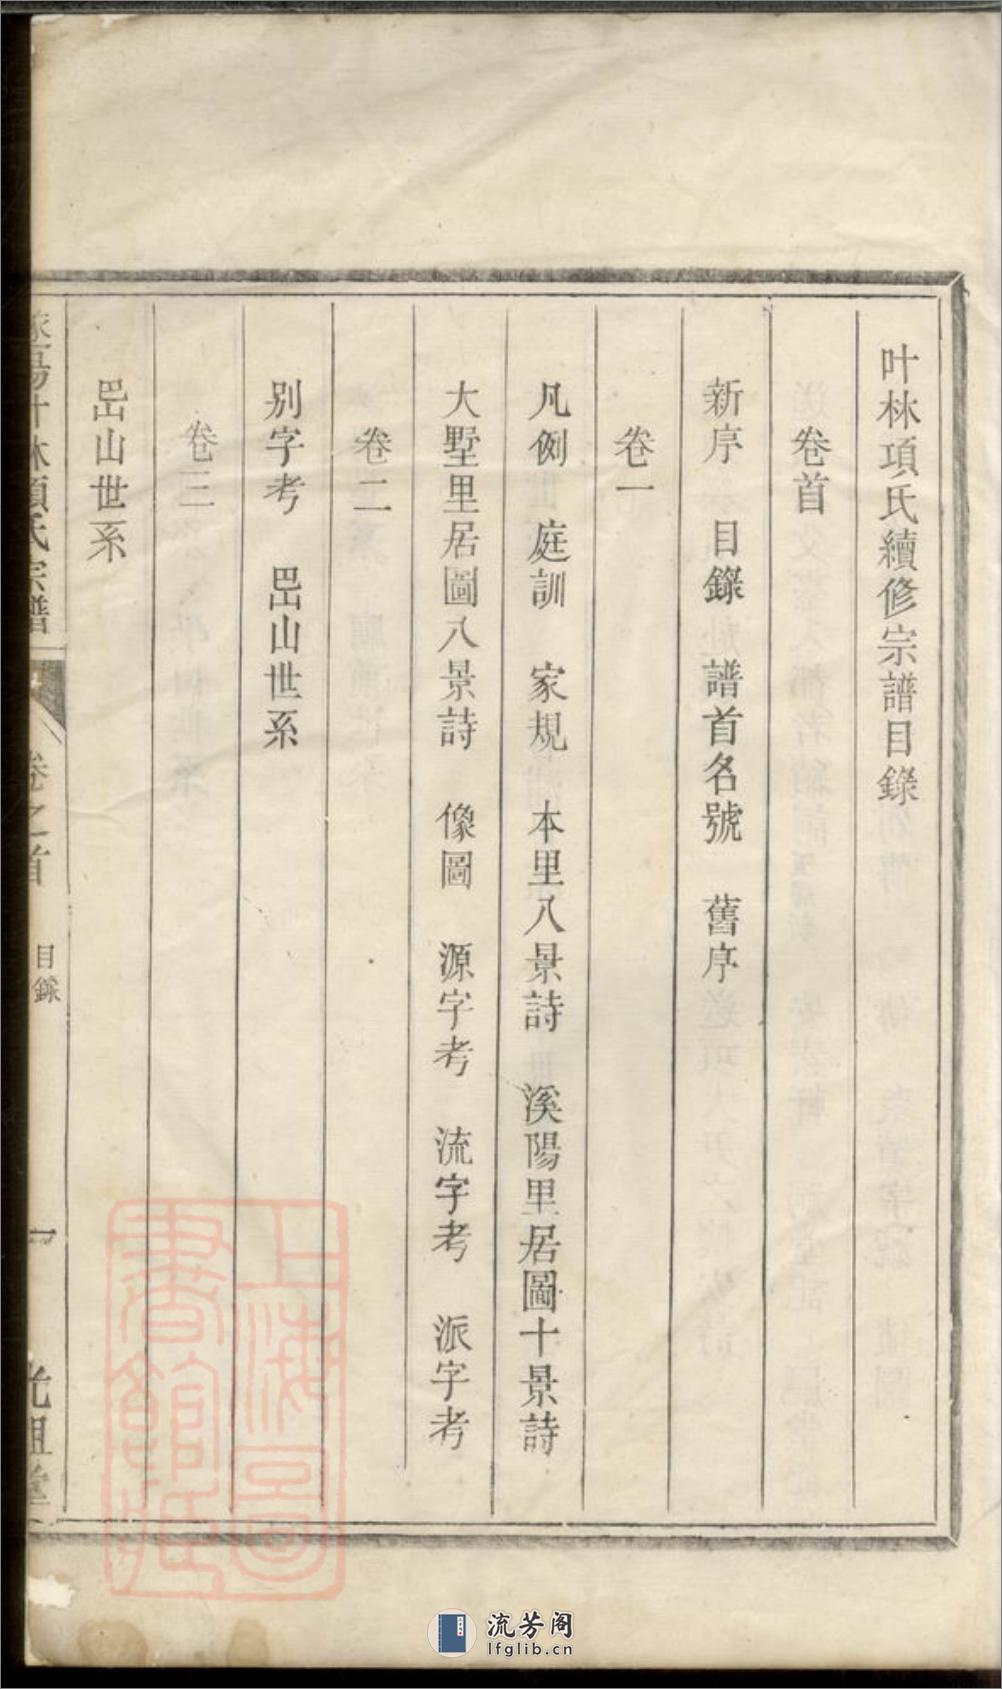 叶林項氏續修宗譜目錄
卷首
新序 目錄 譜首名號 舊序
卷一
凡例 庭訓 家規 本里八景詩 溪陽里居圖十景詩
大墅里居圖八景詩 像圖 源字考 流字考 派字考
卷二
別字考 岊山世系
卷三
岊山世系
遂陽叶林項氏宗譜 卷之首 目錄 一 光祖堂
上海圖書館藏
流芳阁
lfglib.cn